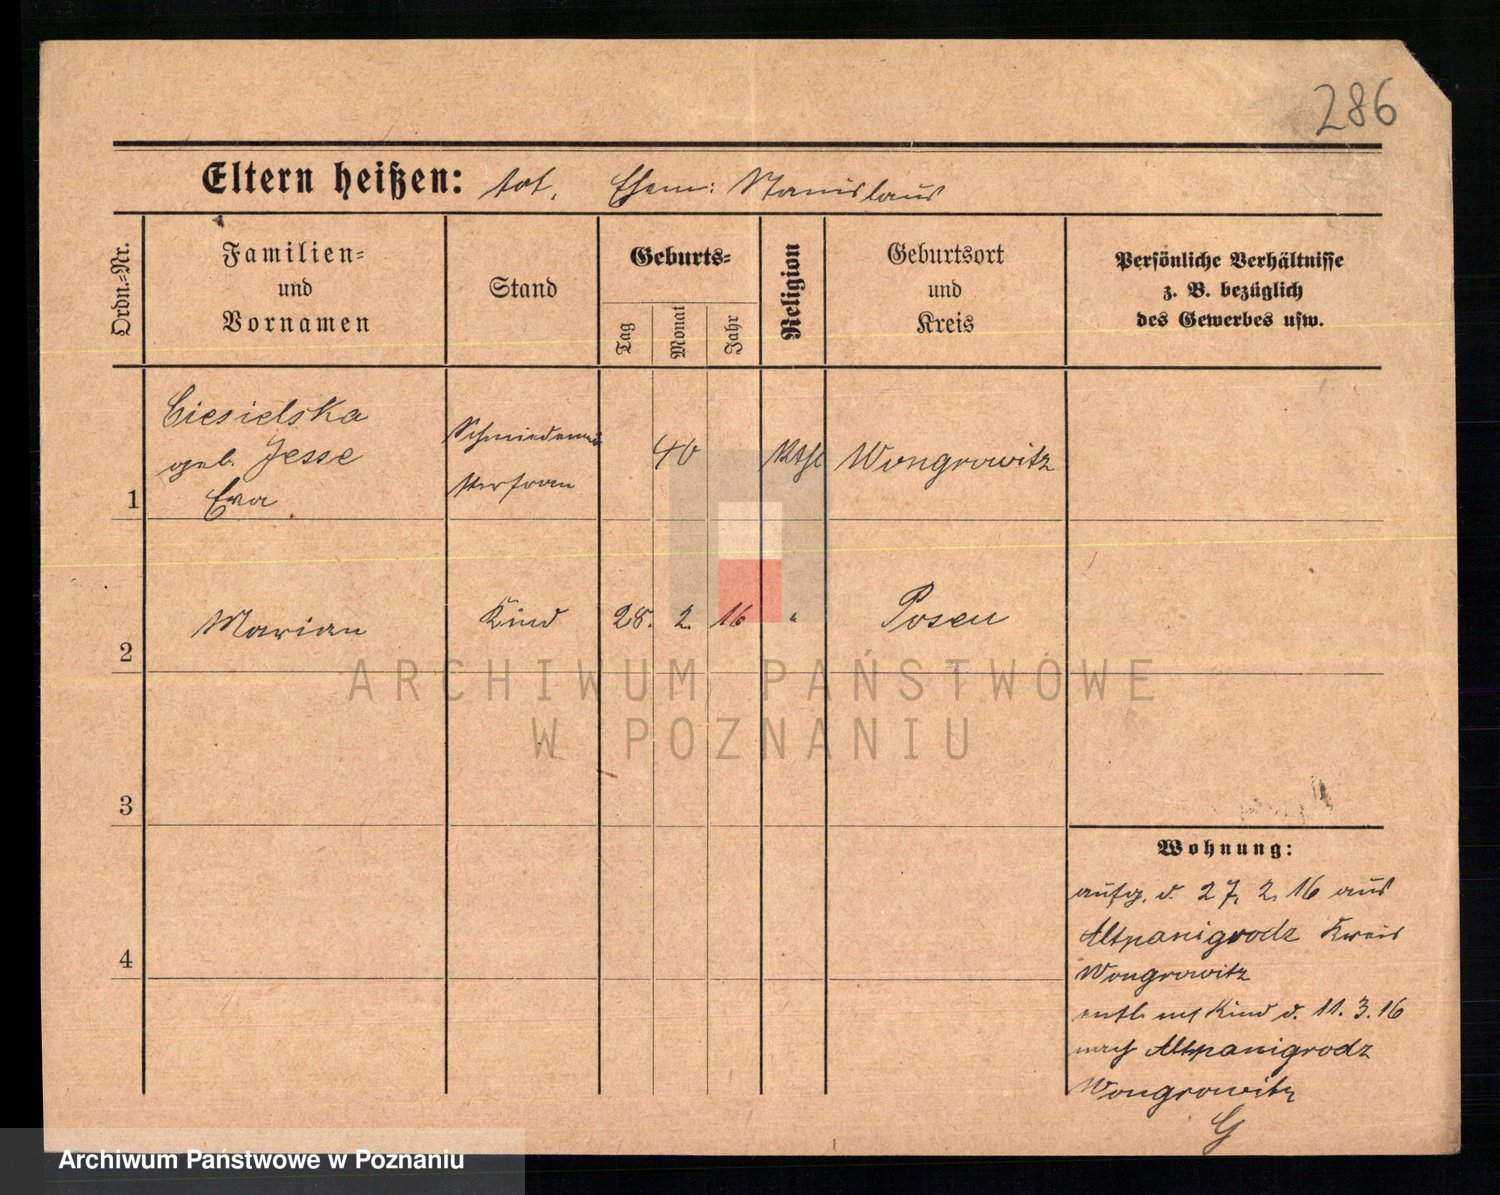 286
Eltern heißen: tot. Ehem: Stanislaus
Ordn.-Nr.
Familien-
und
Vornamen
Stand
Geburts-
Tag
Monat
Jahr
Religion
Geburtsort
und
Kreis
Persönliche Verhältnisse
z. B. bezüglich
des Gewerbes usw.
1
Ciesielska
geb. Jesse
Eva
Schmiedemei
sterfrau
40
kath
Wongrowitz
2
Marian
Kind
28. 2. 16
"
Posen
3
4
Wohnung:
aufg. d. 27. 2. 16 aus
Altpanigrodz Kreis
Wongrowitz
entl. mit Kind d. 11. 3. 16
nach Altpanigrodz
Wongrowitz
G
ARCHIWUM PAŃSTWOWE
W POZNANIU
Archiwum Państwowe w Poznaniu